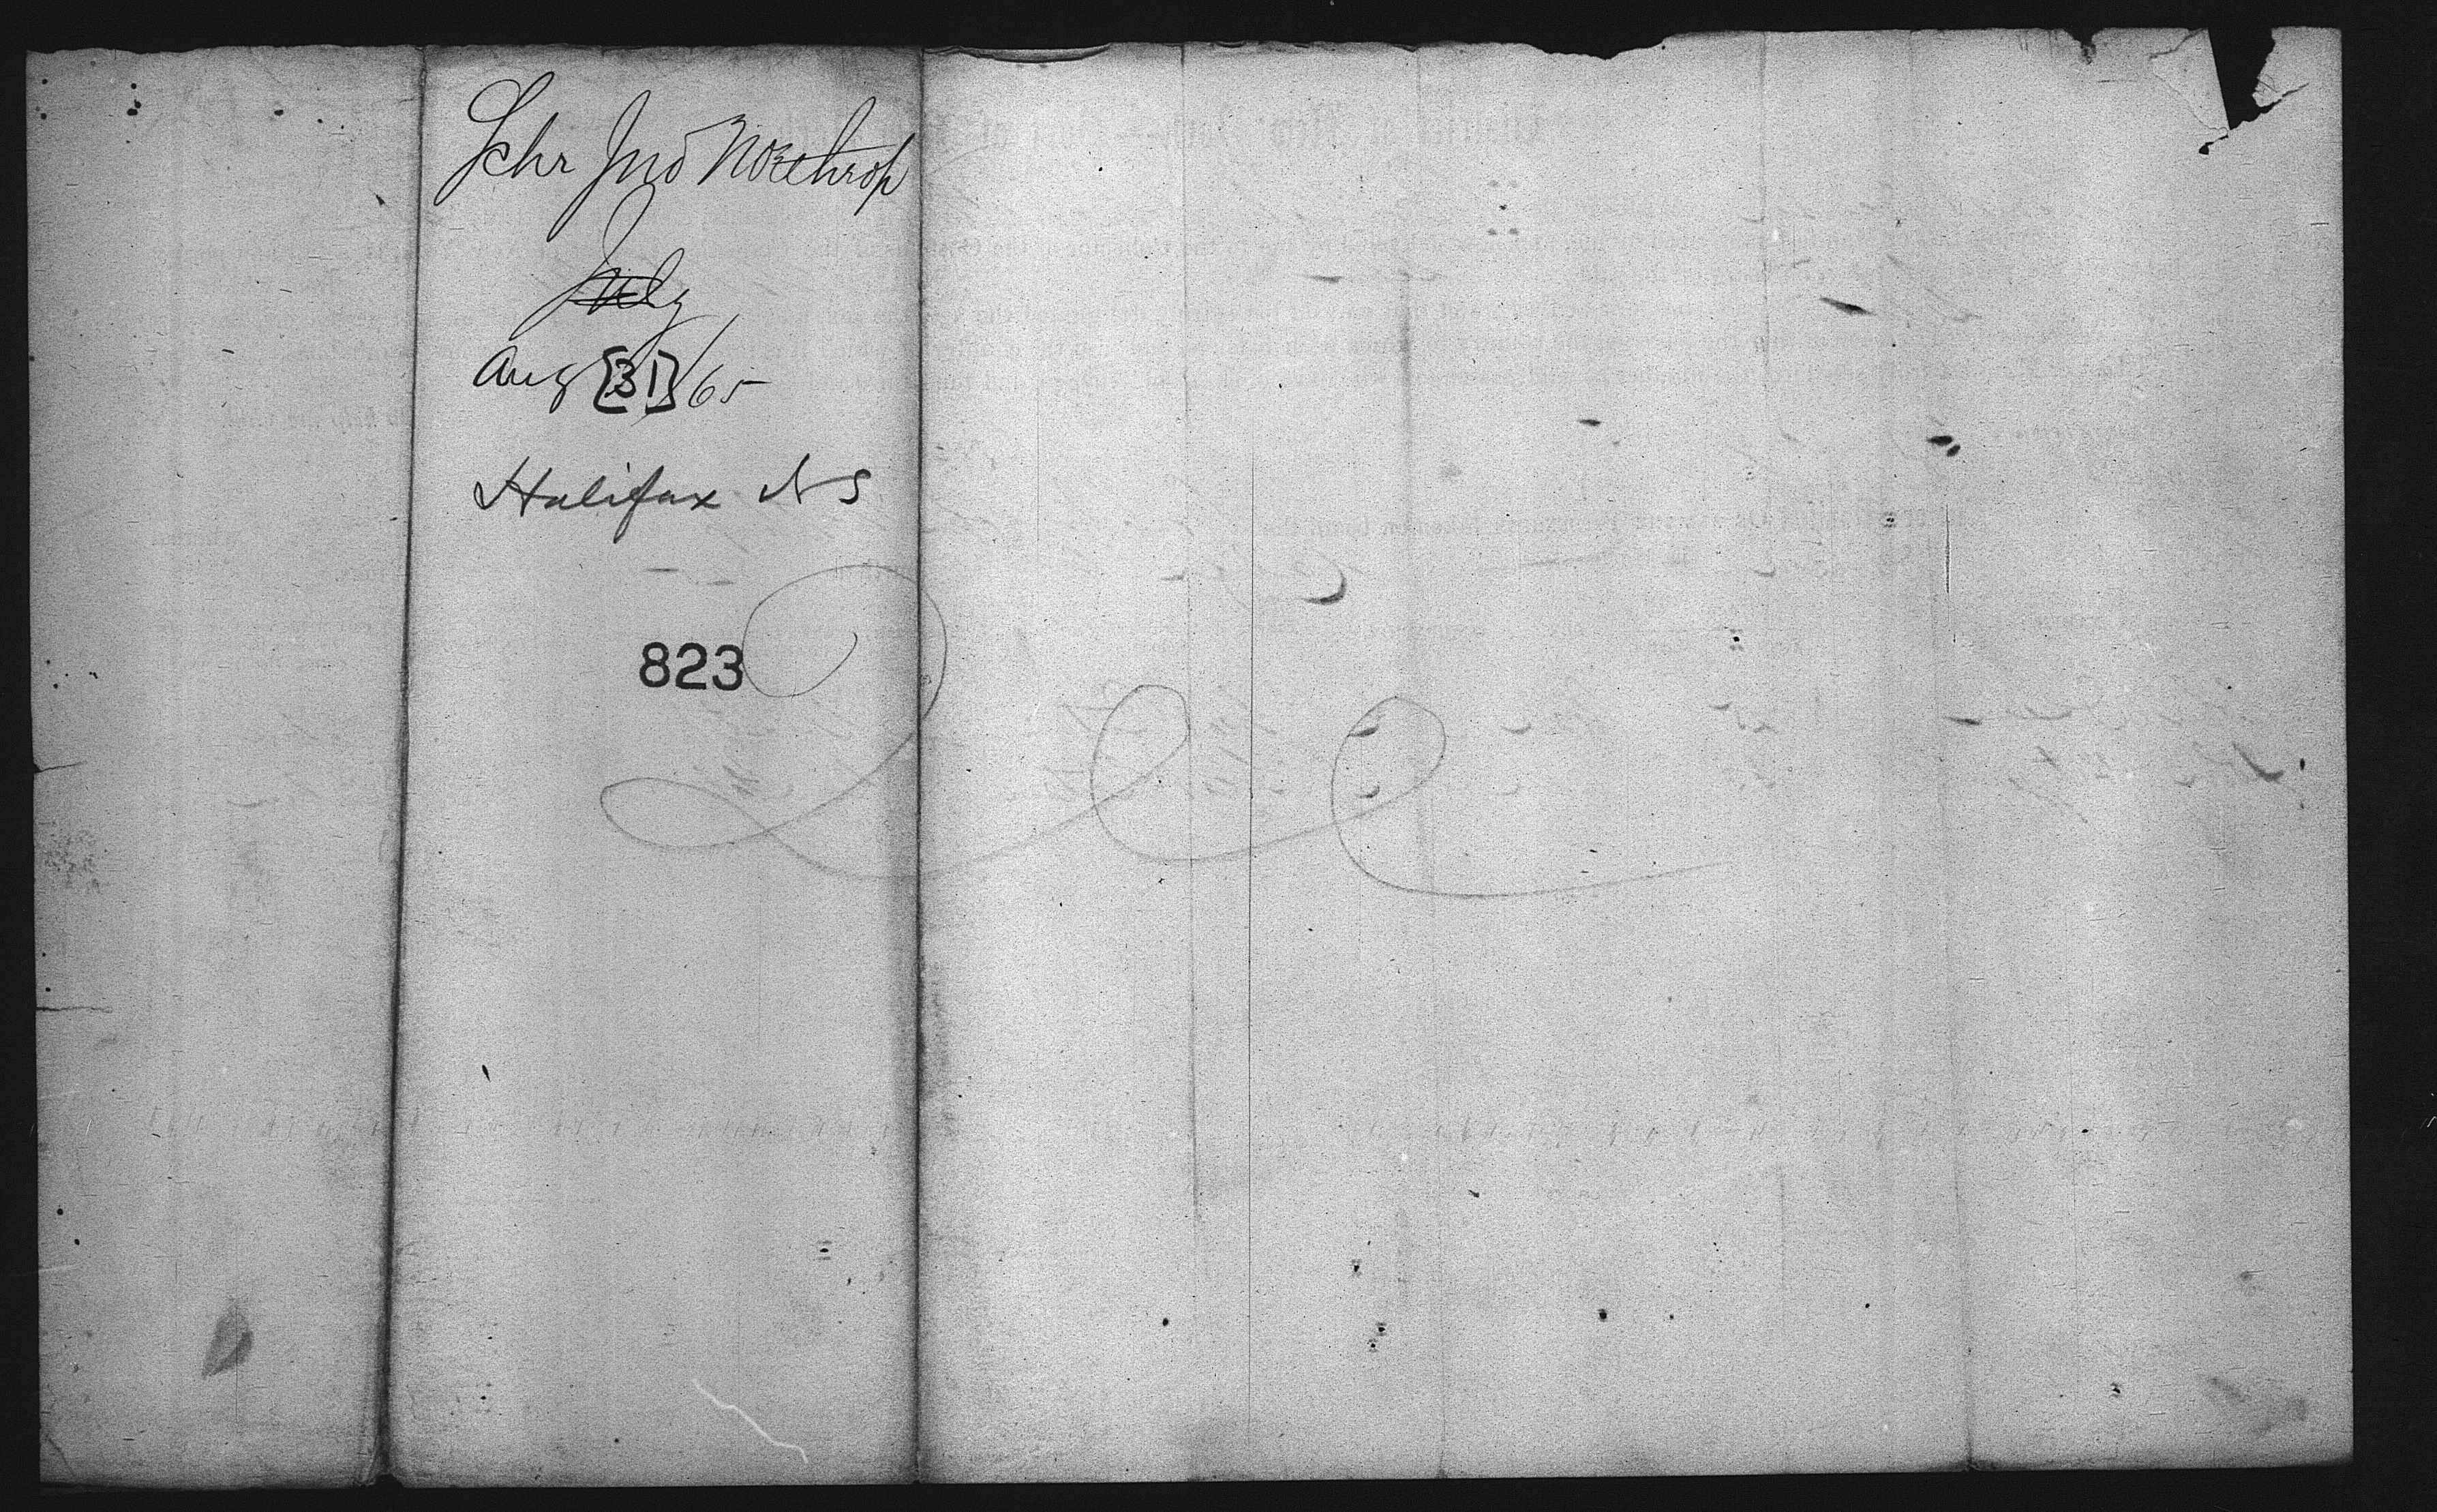 Schr Jno Northrop
July
Aug [31] /65
Halifax N S
823